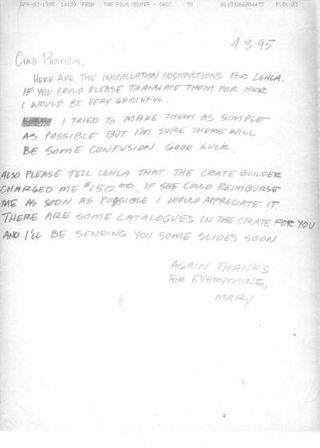 APR-03-1995 14:39 FROM THE FILM CENTER - SAIC TO 01139266804472 P.01/03
4 3.95
CIAO PATRIZIA,
HERE ARE THE INSTALLATION INSTRUCTIONS FOR LEHLA.
IF YOU COULD PLEASE TRANSLATE THEM FOR HER
I WOULD BE VERY GRATEFUL.
I TRIED TO MAKE THEM AS SIMPLE
AS POSSIBLE BUT I'M SURE THERE WILL
BE SOME CONFUSION. GOOD LUCK.
ALSO PLEASE TELL LEHLA THAT THE CRATE BUILDER
CHARGED ME $150.00. IF SHE COULD REIMBURSE
ME AS SOON AS POSSIBLE I WOULD APPRECIATE IT.
THERE ARE SOME CATALOGUES IN THE CRATE FOR YOU
AND I'LL BE SENDING YOU SOME SLIDES SOON
AGAIN THANKS
FOR EVERYTHING,
MARY